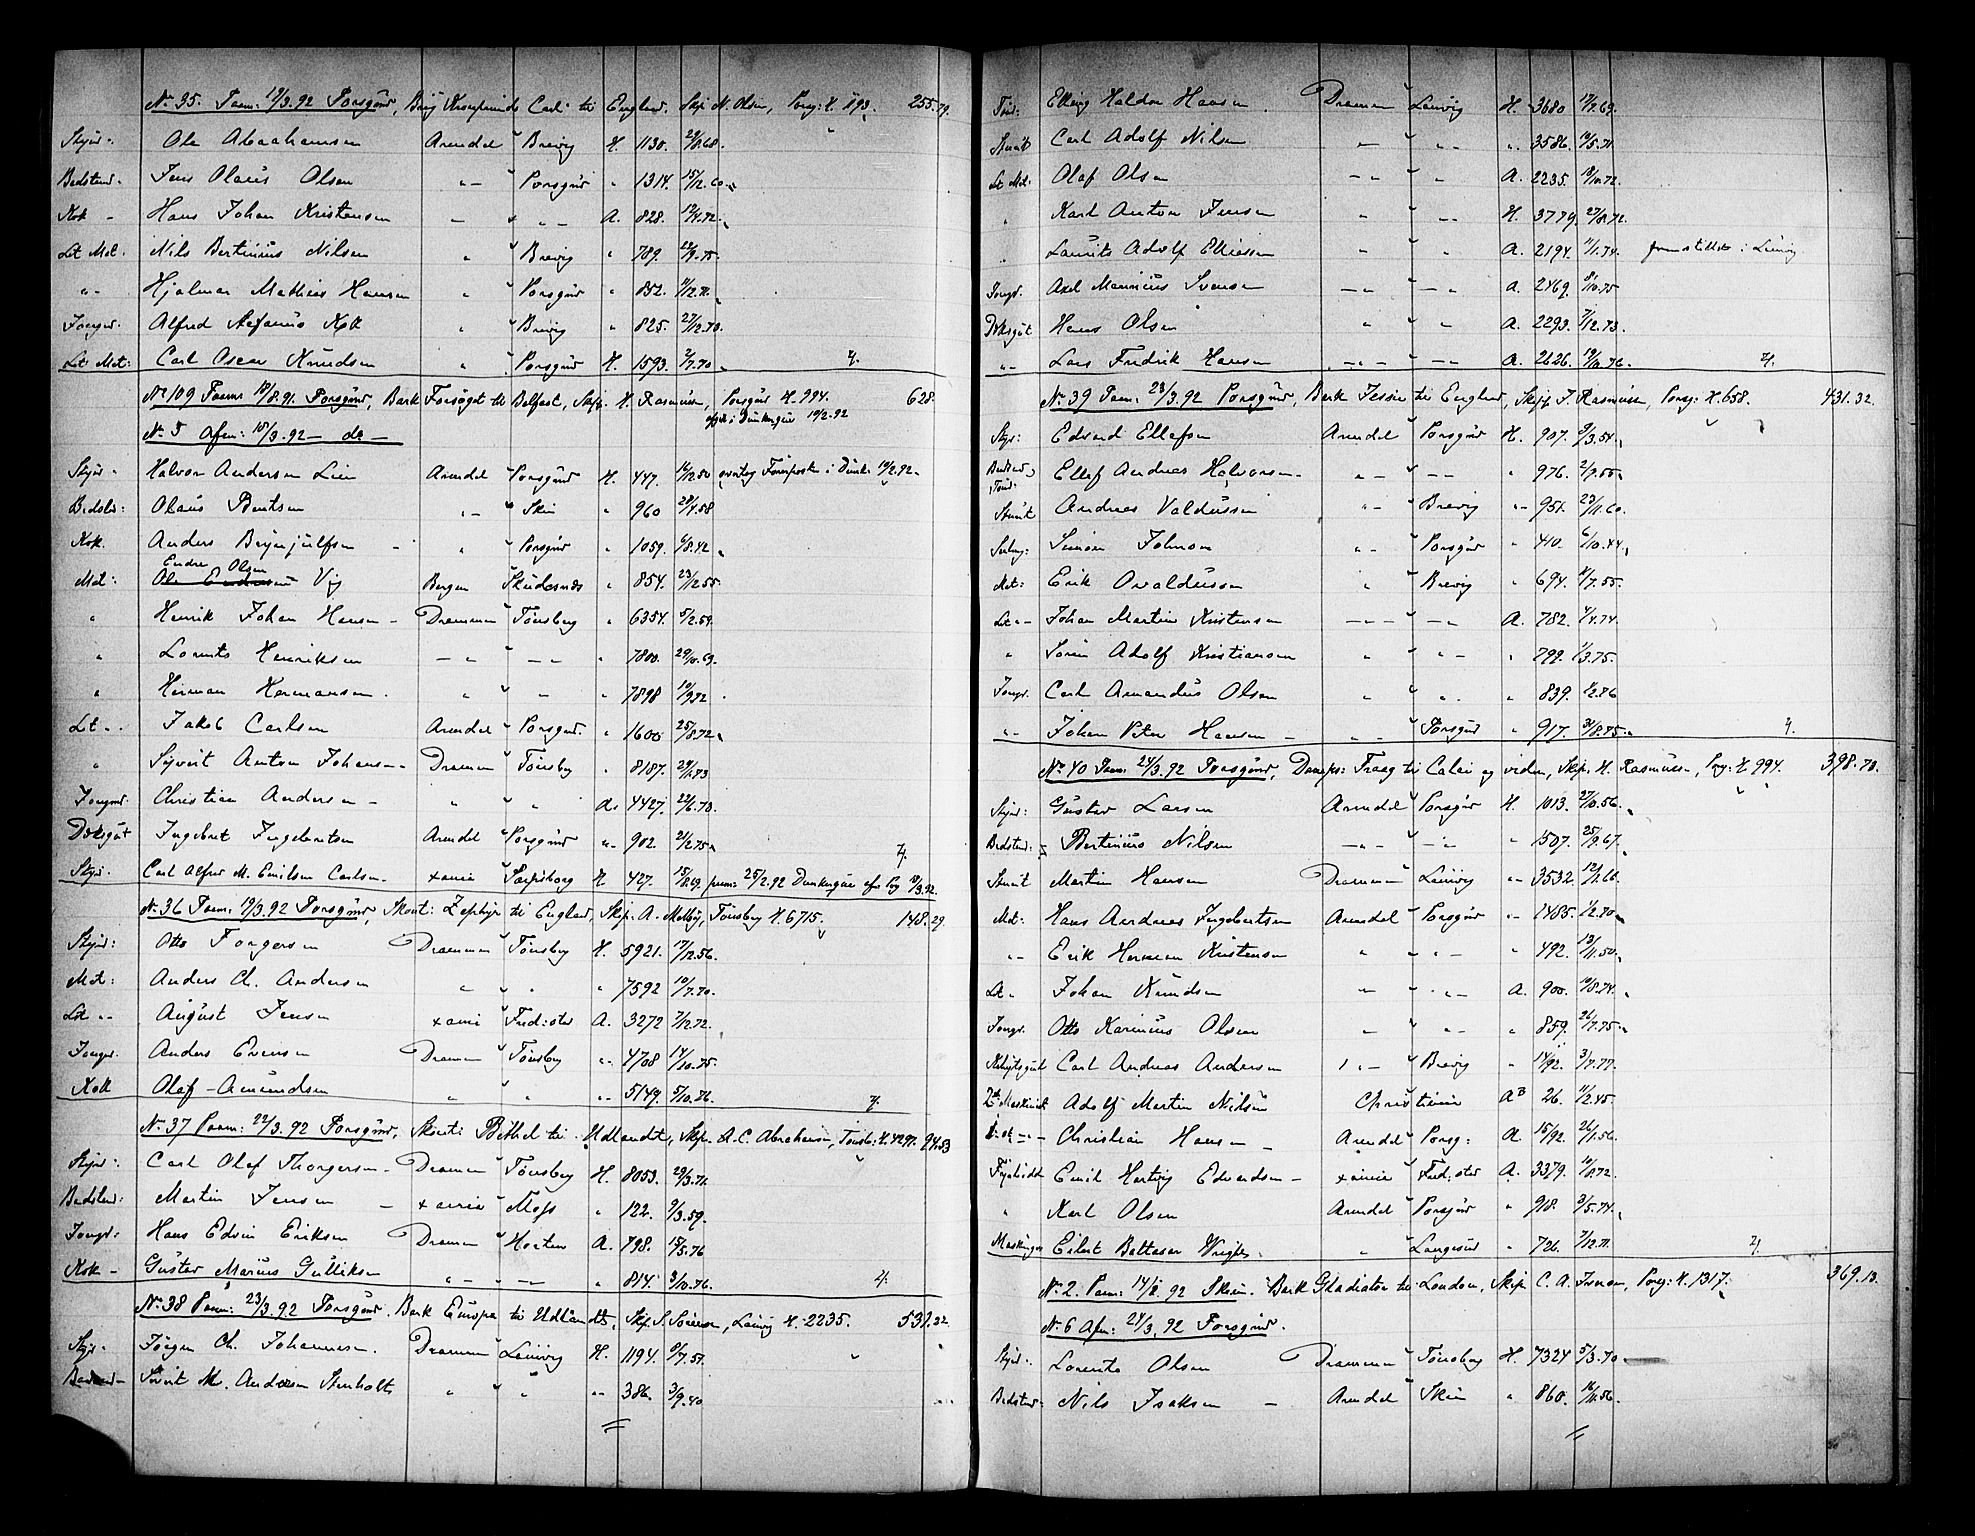 No 35. Paam: 19/3.92 Porsgrund, Brig Carl til England. Skip. N. Olsen, Porsg: H. 893. 255.79.
Styrm: Ole Abrahamsen Arendal Brevig H. 1130. 29/8.68.
Bedstmd. Jens Olaus Olsen " Porsgrund " 1314. 15/12.60.
Kok - Hans Johan Kristensen " " A. 828. 12/4.72.
Let Mat. Nils Bertinius Nilsen " Brevig " 789. 22/9.75.
" Hjalmar Mathias Hansen " Porsgrund " 852. 9/12.71.
Jungm. Alfred Stefanus Kok " Brevig " 825. 27/12.70.
Let Mat: Carl Oscar Knudsen " Porsgrund H. 1593. 2/7.70. 7.
No 109 Paam: 18/8.91. Porsgrund, Bark Forsøget til Belfast, Skip. H. Rasmussen, Porsgrund H. 994. 628.
No 5 Afm: 18/3.92 - do -
Styrm: Halvor Andersen Lien Arendal Porsgrund H. 447. 14/12.50
Bedstm: Olaus Bentsen " Skien " 960 28/4.58
Kok. Anders Brynjulfsen " Porsgrund " 1059. 6/8.42
Mat: Endre Olsen Vig Bergen Skudesnæs " 854. 23/12.55.
" Henrik Johan Hansen - Drammen Tønsberg " 6354. 5/2.59.
" Lorents Henriksen - " - - 7800. 29/10.69.
" Herman Hermansen. " " - " 7898 10/9.72
Let " Jakob Carlsen Arendal Porsgrund. " 1600 25/8.72
" Syvert Anton Johansen Drammen Tønsberg " 8187. 29/1.73
Jungmd. Christian Andersen - " " A. 4427. 22/6.70.
Dæksgut Ingebret Ingebretsen Arendal Porsgrund " 902. 21/2.75. 7.
Styr. Carl Alfred M. Emilsen Carlsen. Xania Sarpsborg H. 427. 15/8.69. paam: 25/2.92 Dunkerque afm Pg 18/3.92.
No 36 Paam. 19/3.92 Porsgrund, Skont: Zephyr til England, Skip. A. Melby, Tønsberg H. 6715. 148.29.
Styrm: Otto Torgersen Drammen Tønsberg H. 5921. 17/12.56.
Mat: Anders Ch. Andersen " " " 7592 10/7.70.
Let " August Jensen Xania Fred:stad A. 3272 7/12.72.
Jungm. Anders Evensen Drammen Tønsberg " 4708 14/10.75.
Kok Olaf Amundsen " " " 5149. 5/10.76. 7.
No 37 Paam: 22/3.92 Porsgrund, Skont: Bethel til Udlandet, Skip. A. C. Abrahamsen, Tønsb: H. 4297. 94.53
Styrm: Carl Olaf Thorgersen - Drammen Tønsberg H. 8053. 29/3.71.
Bedstmd: Martin Jensen - Xania Moss " 122. 9/3.59.
Jungm: Hans Edvin Eriksen Drammen Horten A. 798. 15/5.76
Kok - Gustav Marius Gulliksen " - " - " 814. 3/10.76. 7.
No 38 Paam: 23/3.92 Porsgrund. Bark Europa til Udlandet, Skip. S. Sørensen, Laurvig H. 2235. 531.32.
Styr. Jørgen Ch. Johannesen. Drammen Laurvig H. 1194. 9/7.51.
Sivert M. Andersen Stenholt " " " 386. 3/9.40
Tømd: Elling Haldor Hansen. Drammen Laurvig H. 3680 17/2.69.
Stuart Carl Adolf Nilsen - " - " " 3586. 19/5.71
Let Mat: Olaf Olsen - " - " A. 2235. 18/10.72.
" Karl Anton Jensen " " - H. 3779. 27/8.72.
" Laurits Adolf Ellissen " " A. 2194. 11/1.74. fremstillet i Laurvig
Jungm. Axel Maurius Svensen - " - - " - A. 2469. 8/10.75
Dæksgut Hans Olsen " " A. 2293. 7/12.73.
" - Lars Fredrik Hansen - " - - " - A. 2626. 19/10.76. 7.
No 39 Paam: 23/3.92 Porsgrund, Bark Jessie til England, Skip. J. Rasmussen, Porsg: H. 658. 431.32.
Styr: Edvard Ellefsen Arendal Porsgrund H. 907. 9/3.54.
Bedstmd, Tømd. Ellef Andreas Halvorsen. " - - - " 976. 2/9.55.
Stuart Andreas Valdussen " - Brevig " - 951. 23/11.60.
Seilmg: Simon Johnson " - Porsgrund " 410. 6/10.44.
Mat: Erik Osvaldussen " Brevig " 694. 11/7.55.
Let " - Johan Martin Kristensen - " - - " - A. 782. 4/4.74.
" Søren Adolf Kristiansen " " " - " 799. 1/3.75.
Jungm. Carl Amandus Olsen " " " 839. 1/2.76
" - Johan Peter Hansen - " - Porsgrund " 917. 31/8.75. 7.
No 40 Paam. 24/3.92 Porsgrund, Dampsk: Traag til Calai og viden, Skip. H. Rasmussen, Porsg: H. 994. 398.70.
Styrm: Gustav Larsen Arendal Porsgrund H. 1013. 27/10.56.
Bedstmd: Bertinius Nilsen - " - - " - " 1507. 25/9.67.
Stuart Martin Hansen Drammen Laurvig " 3532. 12/1.66.
Mat: Hans Andreas Ingebretsen Arendal Porsgrund " - 1485. 1/2.70.
" - Erik Herman Kristensen " " " - " 492. 13/11.50.
Let " Johan Knudsen " " " - A. 900. 10/8.74.
Jungm. Otto Karinius Olsen " " - " 859. 26/7.75.
Kahytsgut Carl Andreas Andersen " - Brevig " 14/92. 3/7.77.
2den Maskinist Adolf Martin Nilsen Christiania A 26. 11/2.45.
Christian Hansen - Arendal Porsg: A. 15/92. 26/1.56.
Fyrbødr Emil Hartvig Edvardsen - Xania Fred:stad A. 3379. 10/8.72.
" Karl Olsen Arendal Porsgrund " 918. 3/5.74.
Eilert Baltasar Wright. " Langesund " 726. 7/12.71. 7.
No 2. Paam: 14/1.92 Skien. Bark Gladiator til London, Skip. C. A. Iversen, Porsg: H. 1317. 369.13.
No 6 Afm: 24/3.92 Porsgrund.
Styrm: Lorents Olsen Drammen Tønsberg H. 7324 5/3.70
Bedstmd: Nils Isaksen - Arendal Skien " 860. 16/11.56.